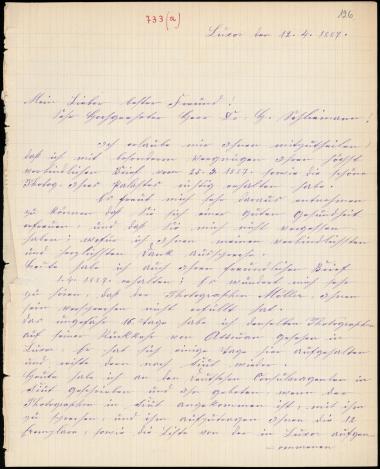 733 (a)
126
Luxor den 12. 4. 1887.
Mein Lieber bester Freund!
Sehr Hochgeehrter Herr Dr. H. Schliemann!
Ich erlaube mir Ihnen mitzutheilen,
daß ich mit besonderem Vergnügen Ihren höchst
verbindlichen Brief vom 25.3.1887. sowie die schöne
Photog. Ihres Palastes richtig erhalten habe.
Es freut mich sehr daraus entnehmen
zu können daß Sie sich einer guten Gesundheit
erfreuen, und daß Sie mich nicht vergessen
haben; wofür ich Ihnen meinen verbindlichsten
und herzlichsten Dank ausspreche.
Heute habe ich auch Ihren freundlichen Brief
1.4.1887. erhalten! Es wundert mich sehr
zu hören, daß der Photographen Ihnen
sein versprechen nicht erfüllt hat.
Das ungefähr 16. tage habe ich denselben Photographen
auf seiner Rückkehr von Assuan gesehen in
Luxor. Er hat sich einige tage hier aufgehalten
und reiste dann nach Siut weiter.
Heute habe ich an den deutschen Consularagenten in
Siut geschrieben und ihn gebeten, wenn der
Photographen in Siut angekommen ist, mit ihm
zu sprechen, und ihm aufzutragen Ihnen die 12
Exemplare, sowie die Liste von der in Luxor aufgen-
ommenen